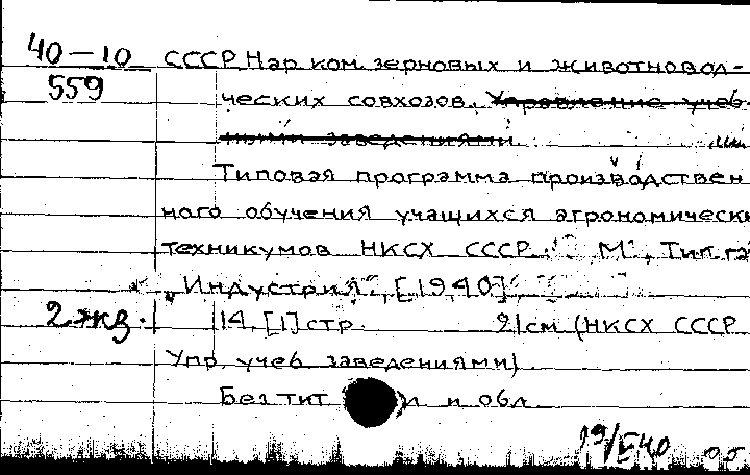 40-10
559
СССР Нар. ком. зерновых и животновод-
ческих совхозов. Управление учеб-
ными заведениями
Типовая программа производствен
ного обучения учащихся агрономически
техникумов НКСХ СССР. М., Тип. га
"Индустрия", [1940]
2 экз.
14, [1] стр. 21 см (НКСХ СССР
Упр. учеб. заведениями)
Без тит. л. и обл.